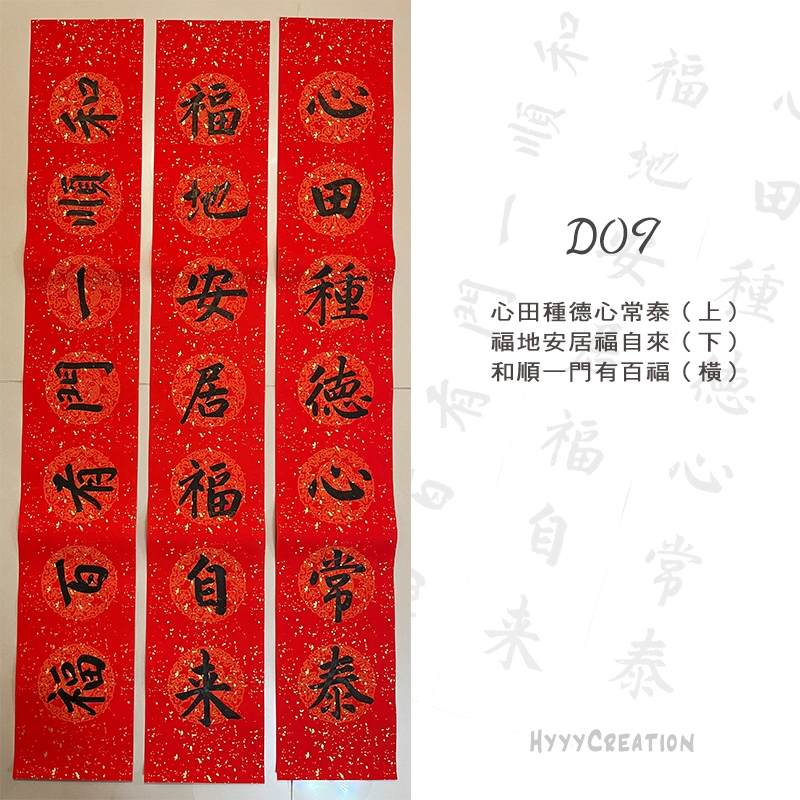 心田種德心常泰
福地安居福自来
和順一門有百福
D09
心田種德心常泰（上）
福地安居福自來（下）
和順一門有百福（橫）
HYYYCREATION